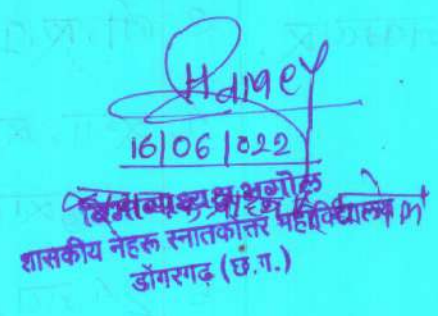 16/06/022
विभागाध्यक्ष भूगोल
शासकीय नेहरू स्नातकोत्तर महाविद्यालय
डोंगरगढ़ (छ.ग.)